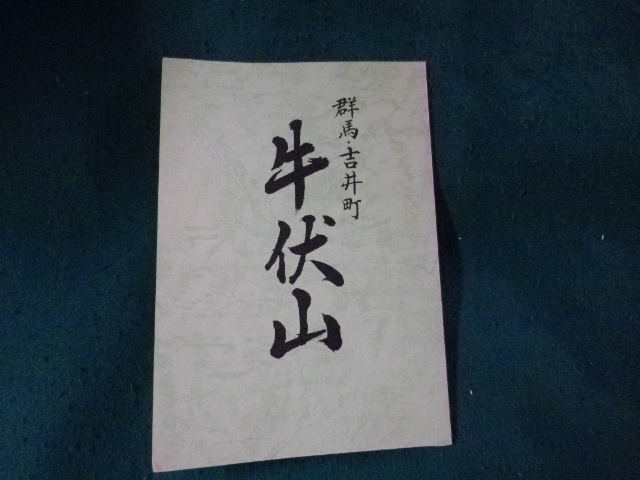 群馬・吉井町
牛伏山